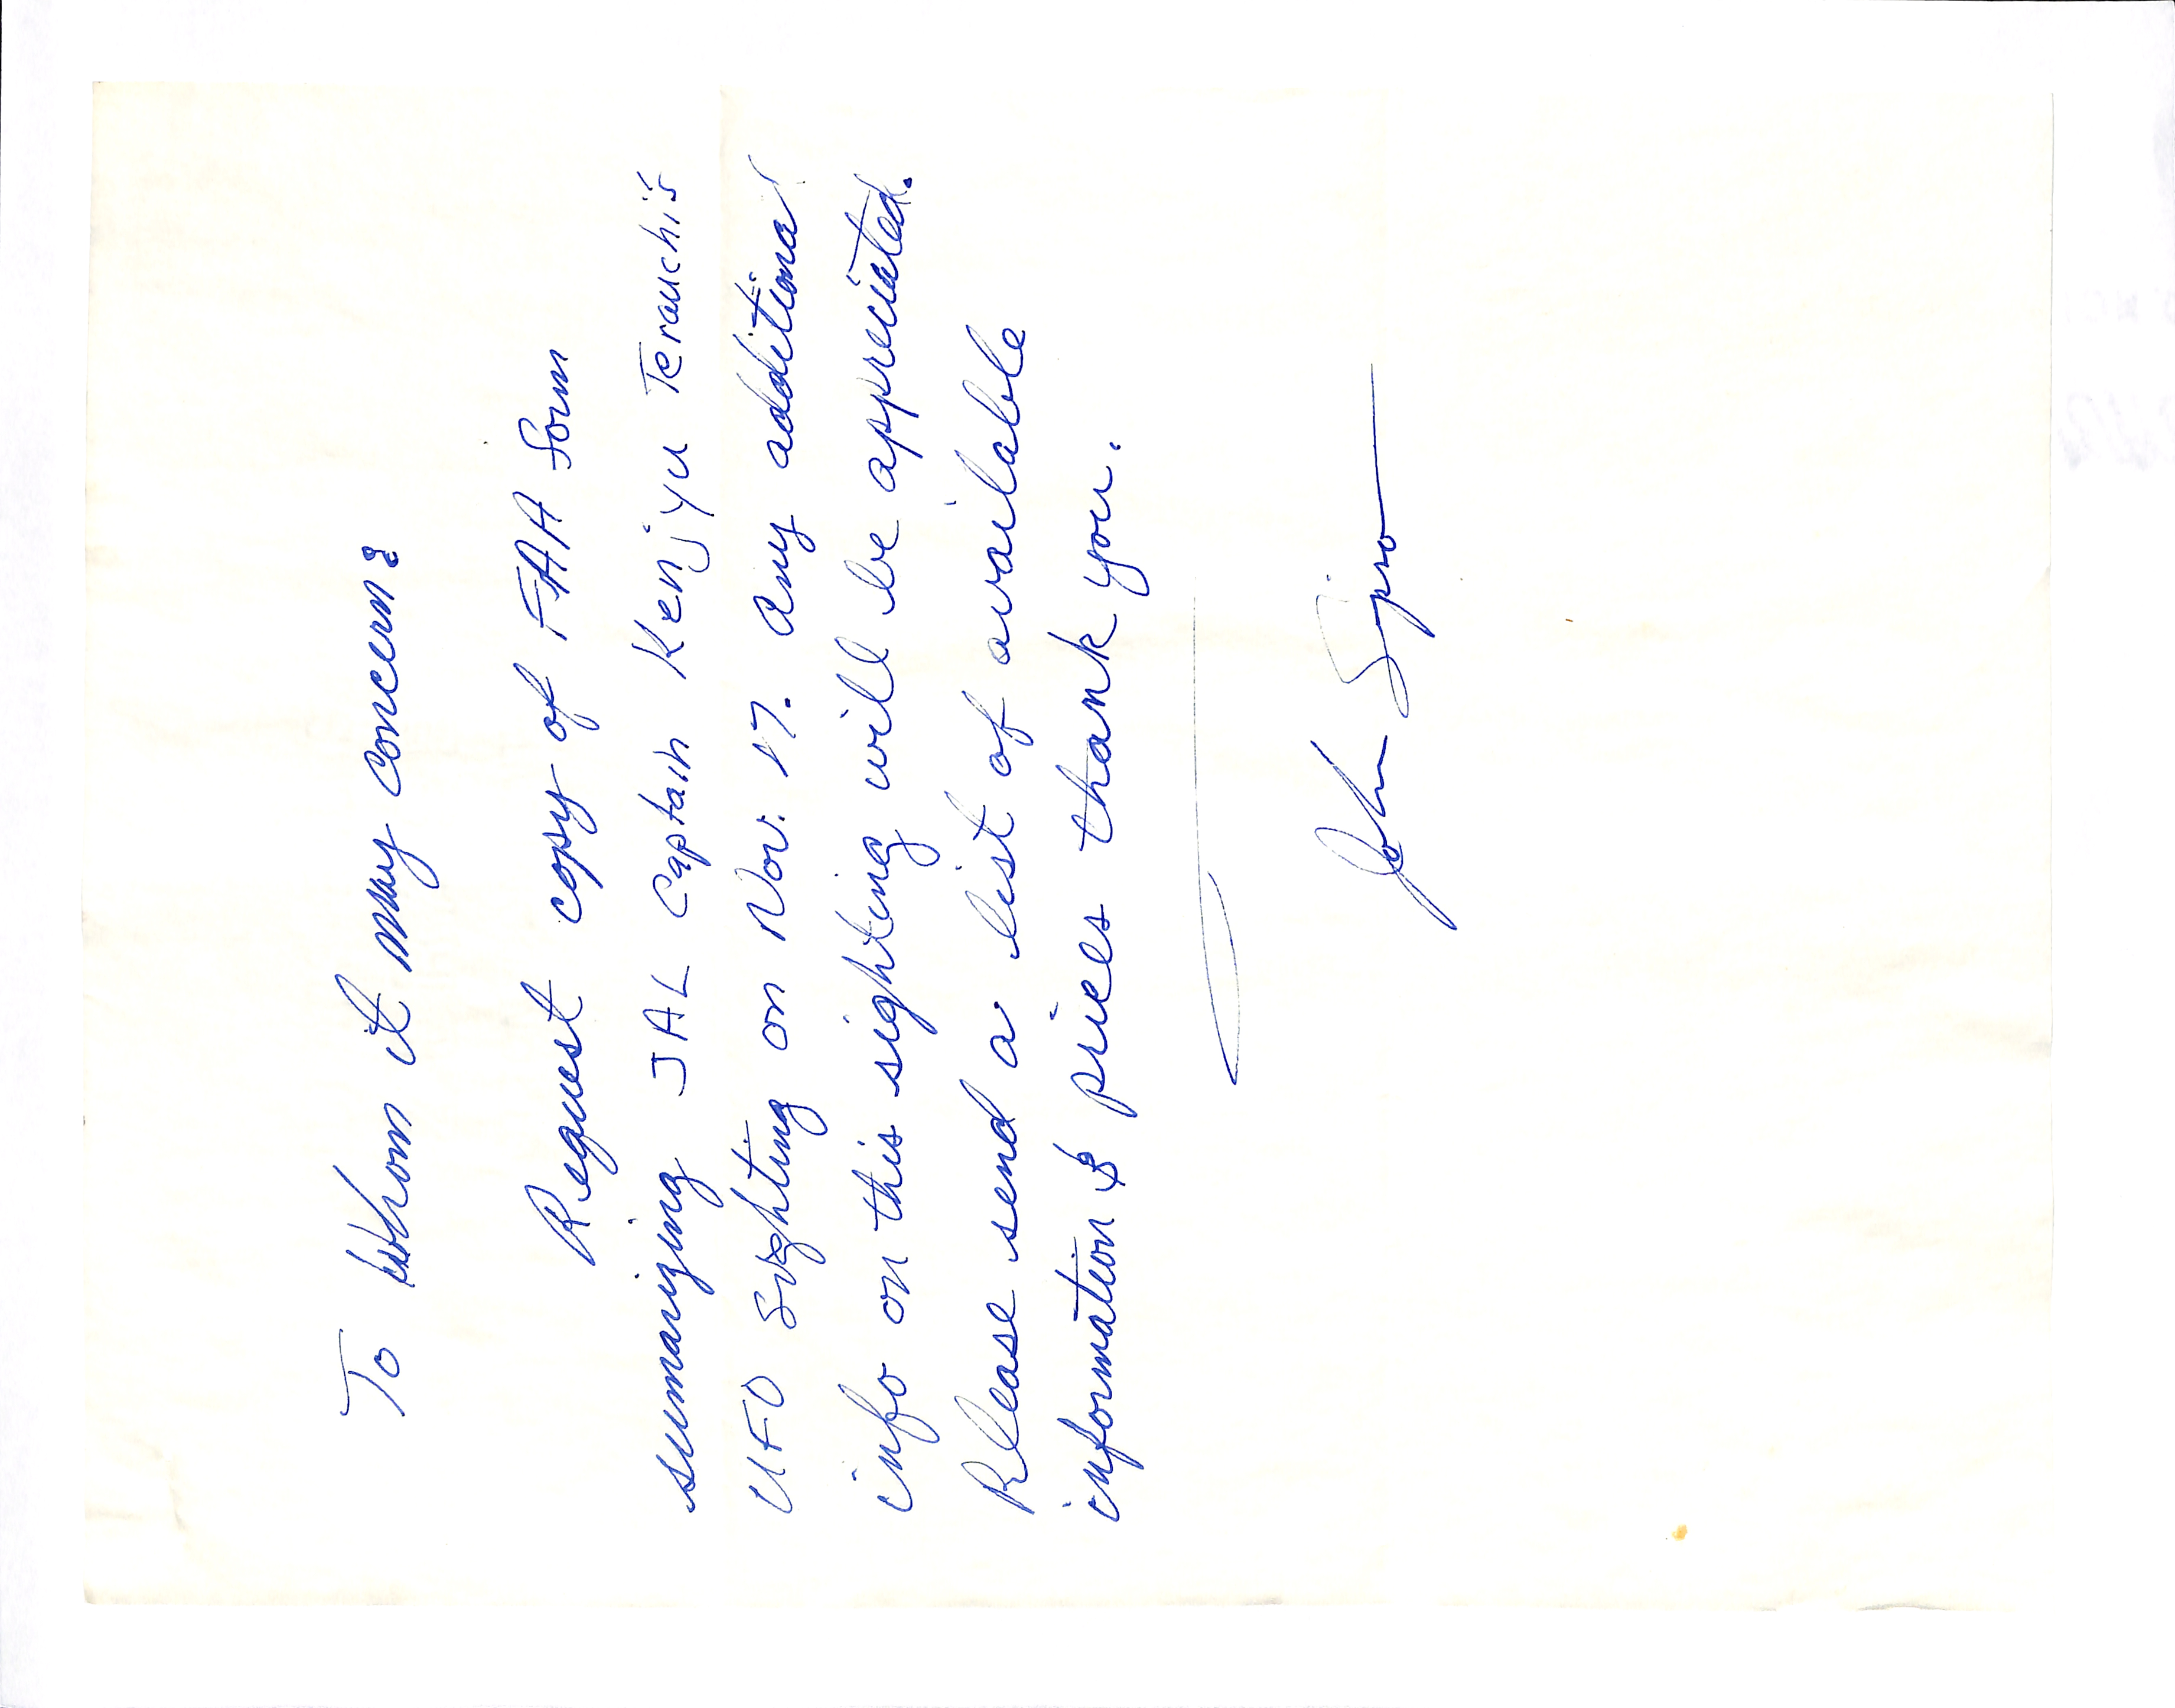 To Whom it may concern:
Request copy of FAA form
summarizing JAL Captain Kenjyu Terauchi's
UFO Sighting on Nov. 17. Any additional
info on this sighting will be appreciated.
Please send a list of available
information & prices thank you.
John Sipro